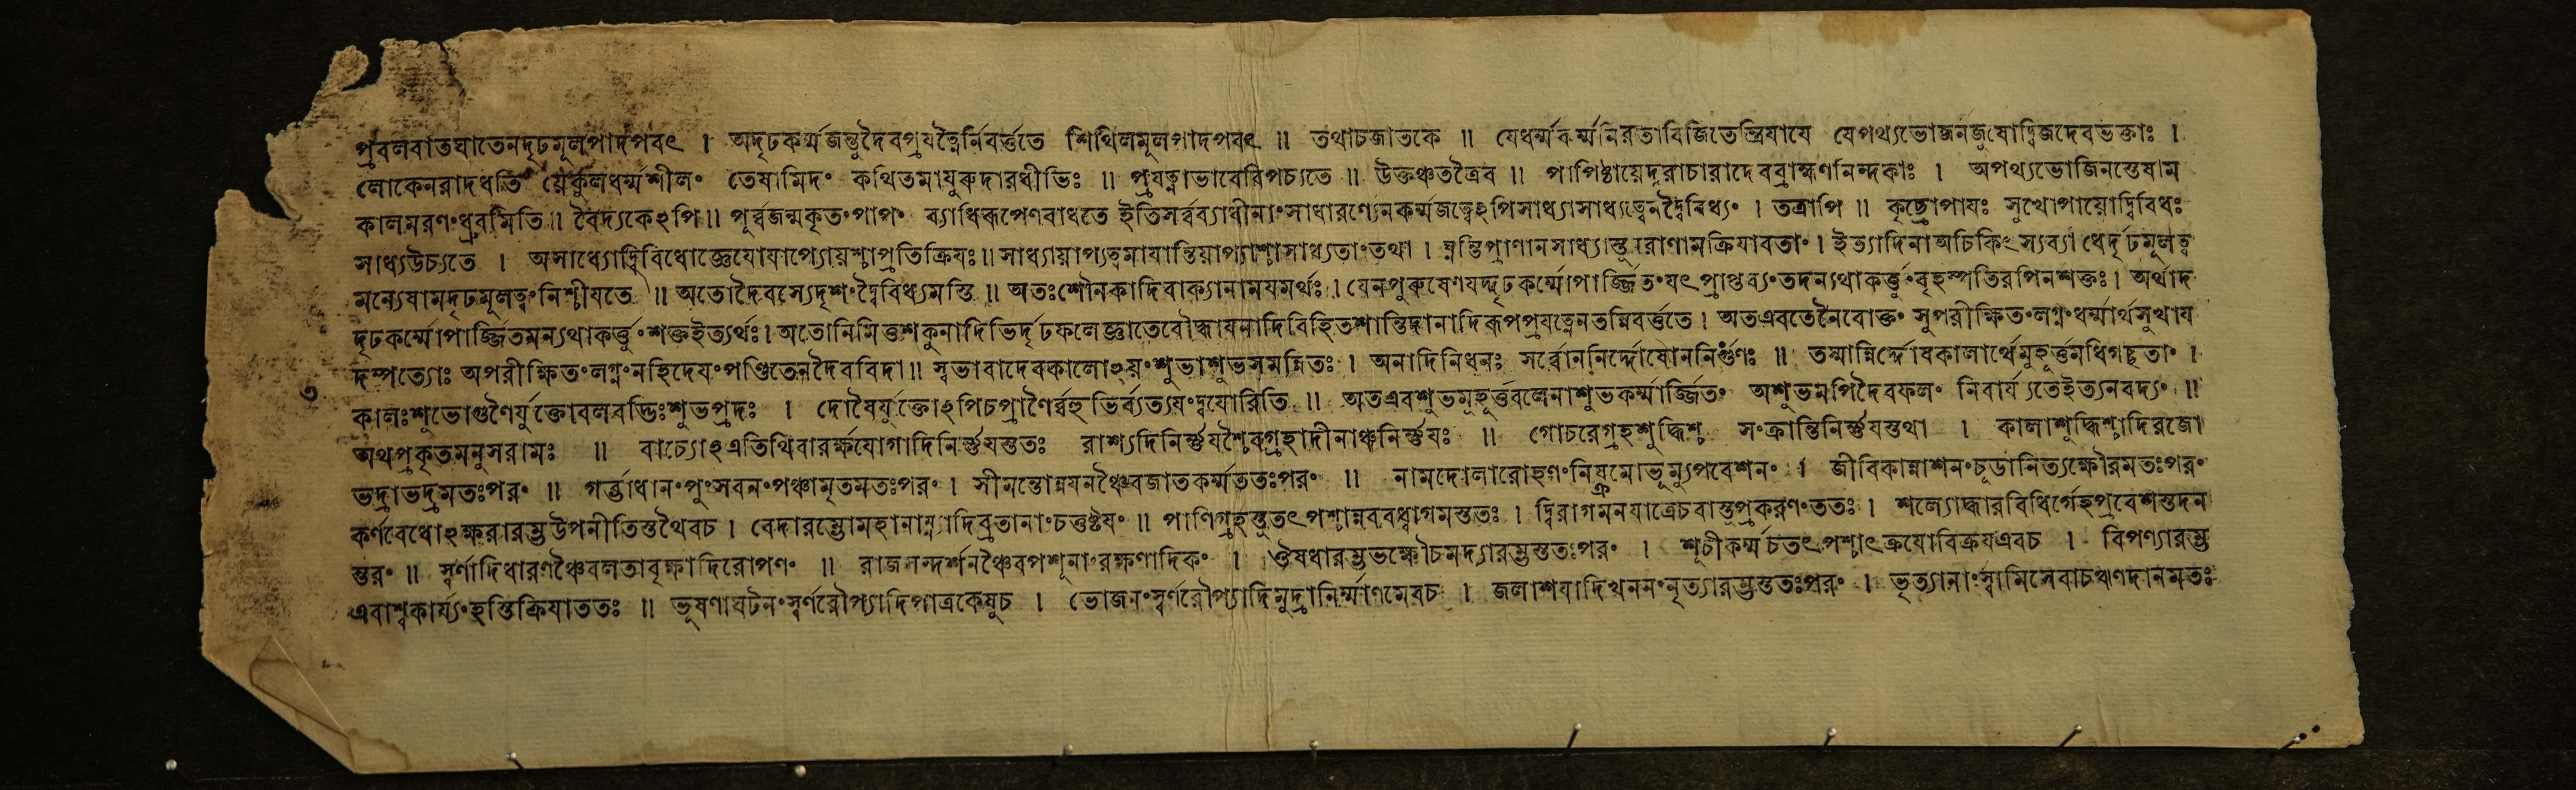 প্রবলবাতঘাতেনদৃঢমূলপাদপবৎ । অদৃঢকর্ম্মজন্তুদৈবপ্রযত্নৈর্নিবর্ত্ততে শিথিলমূলপাদপবৎ ॥ তথাচজাতকে ॥ যেধর্ম্মকর্ম্মনিরতাবিজিতেন্দ্রিযাযে যেপথ্যভোজনজুষোদ্বিজদেবভক্তাঃ ।
লোকেনরাদধতি যেকুলধর্ম্মশীলং তেষামিদং কথিতমাযুরুদারধীভিঃ ॥ প্রযত্নাভাবেবিপচ্যতে ॥ উক্তঞ্চতত্রৈব ॥ পাপিষ্ঠাযেদুরাচারাদেবব্রাহ্মণনিন্দকাঃ । অপথ্যভোজিনস্তেষাম
কালমরণংধ্রুবমিতি ॥ বৈদ্যকেঽপি ॥ পূর্ব্বজন্মকৃতংপাপং ব্যাধিরূপেণবাধতে ইতিসর্ব্বব্যাধীনাংসাধারণ্যেনকর্ম্মজত্বেঽপিসাধ্যাসাধ্যত্বেনদ্বৈবিধ্যং । তত্রাপি ॥ কৃচ্ছ্রোপাযঃ সুখোপাযোদ্বিবিধঃ
সাধ্যউচ্যতে । অসাধ্যোদ্বিবিধোজ্ঞেযোযাপ্যোযশ্চাপ্রতিক্রিযঃ ॥ সাধ্যাযাপ্যত্বমাযান্তিযাপ্যাশ্চাসাধ্যতাংতথা । ঘ্নন্তিপ্রাণানসাধ্যাস্তুনরাণামক্রিযাবতাং । ইত্যাদিনাঅচিকিৎস্যব্যাধের্দৃঢমূলত্ব
মন্যেষামদৃঢমূলত্বংনিশ্চীযতে ॥ অতোদৈবস্যেদৃশংদ্বৈবিধ্যমস্তি ॥ অতঃশৌনকাদিবাক্যানামযমর্থঃ । যেনপুরুষেণযদ্দৃঢকর্ম্মোপার্জ্জিতংযৎপ্রাপ্তব্যংতদন্যথাকর্ত্তুংবৃহস্পতিরপিনশক্তঃ । অর্থাদ
দৃঢকর্ম্মোপার্জ্জিতমন্যথাকর্ত্তুংশক্তইত্যর্থঃ । অতোনিমিত্তশকুনাদিভির্দৃঢফলেজ্ঞাতেবৌদ্ধাযনাদিবিহিতশান্তিদানাদিরূপপ্রযত্নেনতন্নিবর্ত্ততে । অতএবতেনৈবোক্তং সুপরীক্ষিতংলগ্নংধর্ম্মার্থসুখায
দম্পত্যোঃ অপরীক্ষিতংলগ্নংনহিদেযংপণ্ডিতেনদৈববিদা ॥ স্বভাবাদেবকালোঽযংশুভাশুভসমন্বিতঃ । অনাদিনিধনঃ সর্ব্বোননির্দ্দোষোননির্গুণঃ ॥ তস্মান্নির্দ্দোষকালার্থেমুহূর্ত্তমধিগচ্ছতাং ।
৩
কালঃশুভোগুণৈর্যুক্তোবলবদ্ভিঃশুভপ্রদঃ । দোষৈর্যুক্তোঽপিচপ্রাণৈর্ব্বহুভির্ব্যত্যযংদ্বযোরিতি ॥ অতএবশুভমুহূর্ত্তবলেনাশুভকর্ম্মার্জ্জিতং অশুভমপিদৈবফলং নিবার্য্যতেইত্যনবদ্যং ॥
অথপ্রকৃতমনুসরামঃ ॥ বাচ্যোঽত্রতিথিবারর্ক্ষযোগাদিনির্ণযস্ততঃ রাশ্যদিনির্ণযশ্চৈবগ্রহাদীনাঞ্চনির্ণযঃ ॥ গোচরেগ্রহশুদ্ধিশ্চ সংক্রান্তিনির্ণযস্তথা । কালাশুদ্ধিশ্চাদিরজো
ভদ্রাভদ্রমতঃপরং ॥ গর্ভাধানংপুংসবনংপঞ্চামৃতমতঃপরং । সীমন্তোন্নযনঞ্চৈবজাতকর্ম্মততঃপরং ॥ নামদোলারোহণংনিষ্ক্রমোভূম্যুপবেশনং । জীবিকান্নাশনংচূডানিত্যক্ষৌরমতঃপরং
কর্ণবেধোঽক্ষরারম্ভউপনীতিস্তথৈবচ । বেদারম্ভোমহানাম্ন্যাদিব্রতানাংচতুষ্টযং ॥ পাণিগ্রহস্তুতৎপশ্চান্নববধ্বাগমস্ততঃ । দ্বিরাগমনযাত্রেচবাস্তুপ্রকরণংততঃ । শল্যোদ্ধারবিধির্গেহপ্রবেশস্তদন
ন্তরং ॥ স্বর্ণাদিধারণঞ্চৈবলতাবৃক্ষাদিরোপণং ॥ রাজসন্দর্শনঞ্চৈবপশূনাংরক্ষণাদিকং । ঔষধারম্ভভক্ষৌচমদ্যারম্ভস্ততঃপরং । শূচীকর্ম্মচতৎপশ্চাৎক্রযোবিক্রযএবচ । বিপণ্যারম্ভ
এবাশ্বকার্য্যংহস্তিক্রিযাততঃ ॥ ভূষণাঘটনংস্বর্ণরৌপ্যাদিপাত্রকেষুচ । ভোজনংস্বর্ণরৌপ্যাদিমুদ্রানির্ম্মাণমেবচ । জলাশযাদিখননংনৃত্যারম্ভস্ততঃপরং । ভৃত্যানাংস্বামিসেবাচঋণদানমতঃ